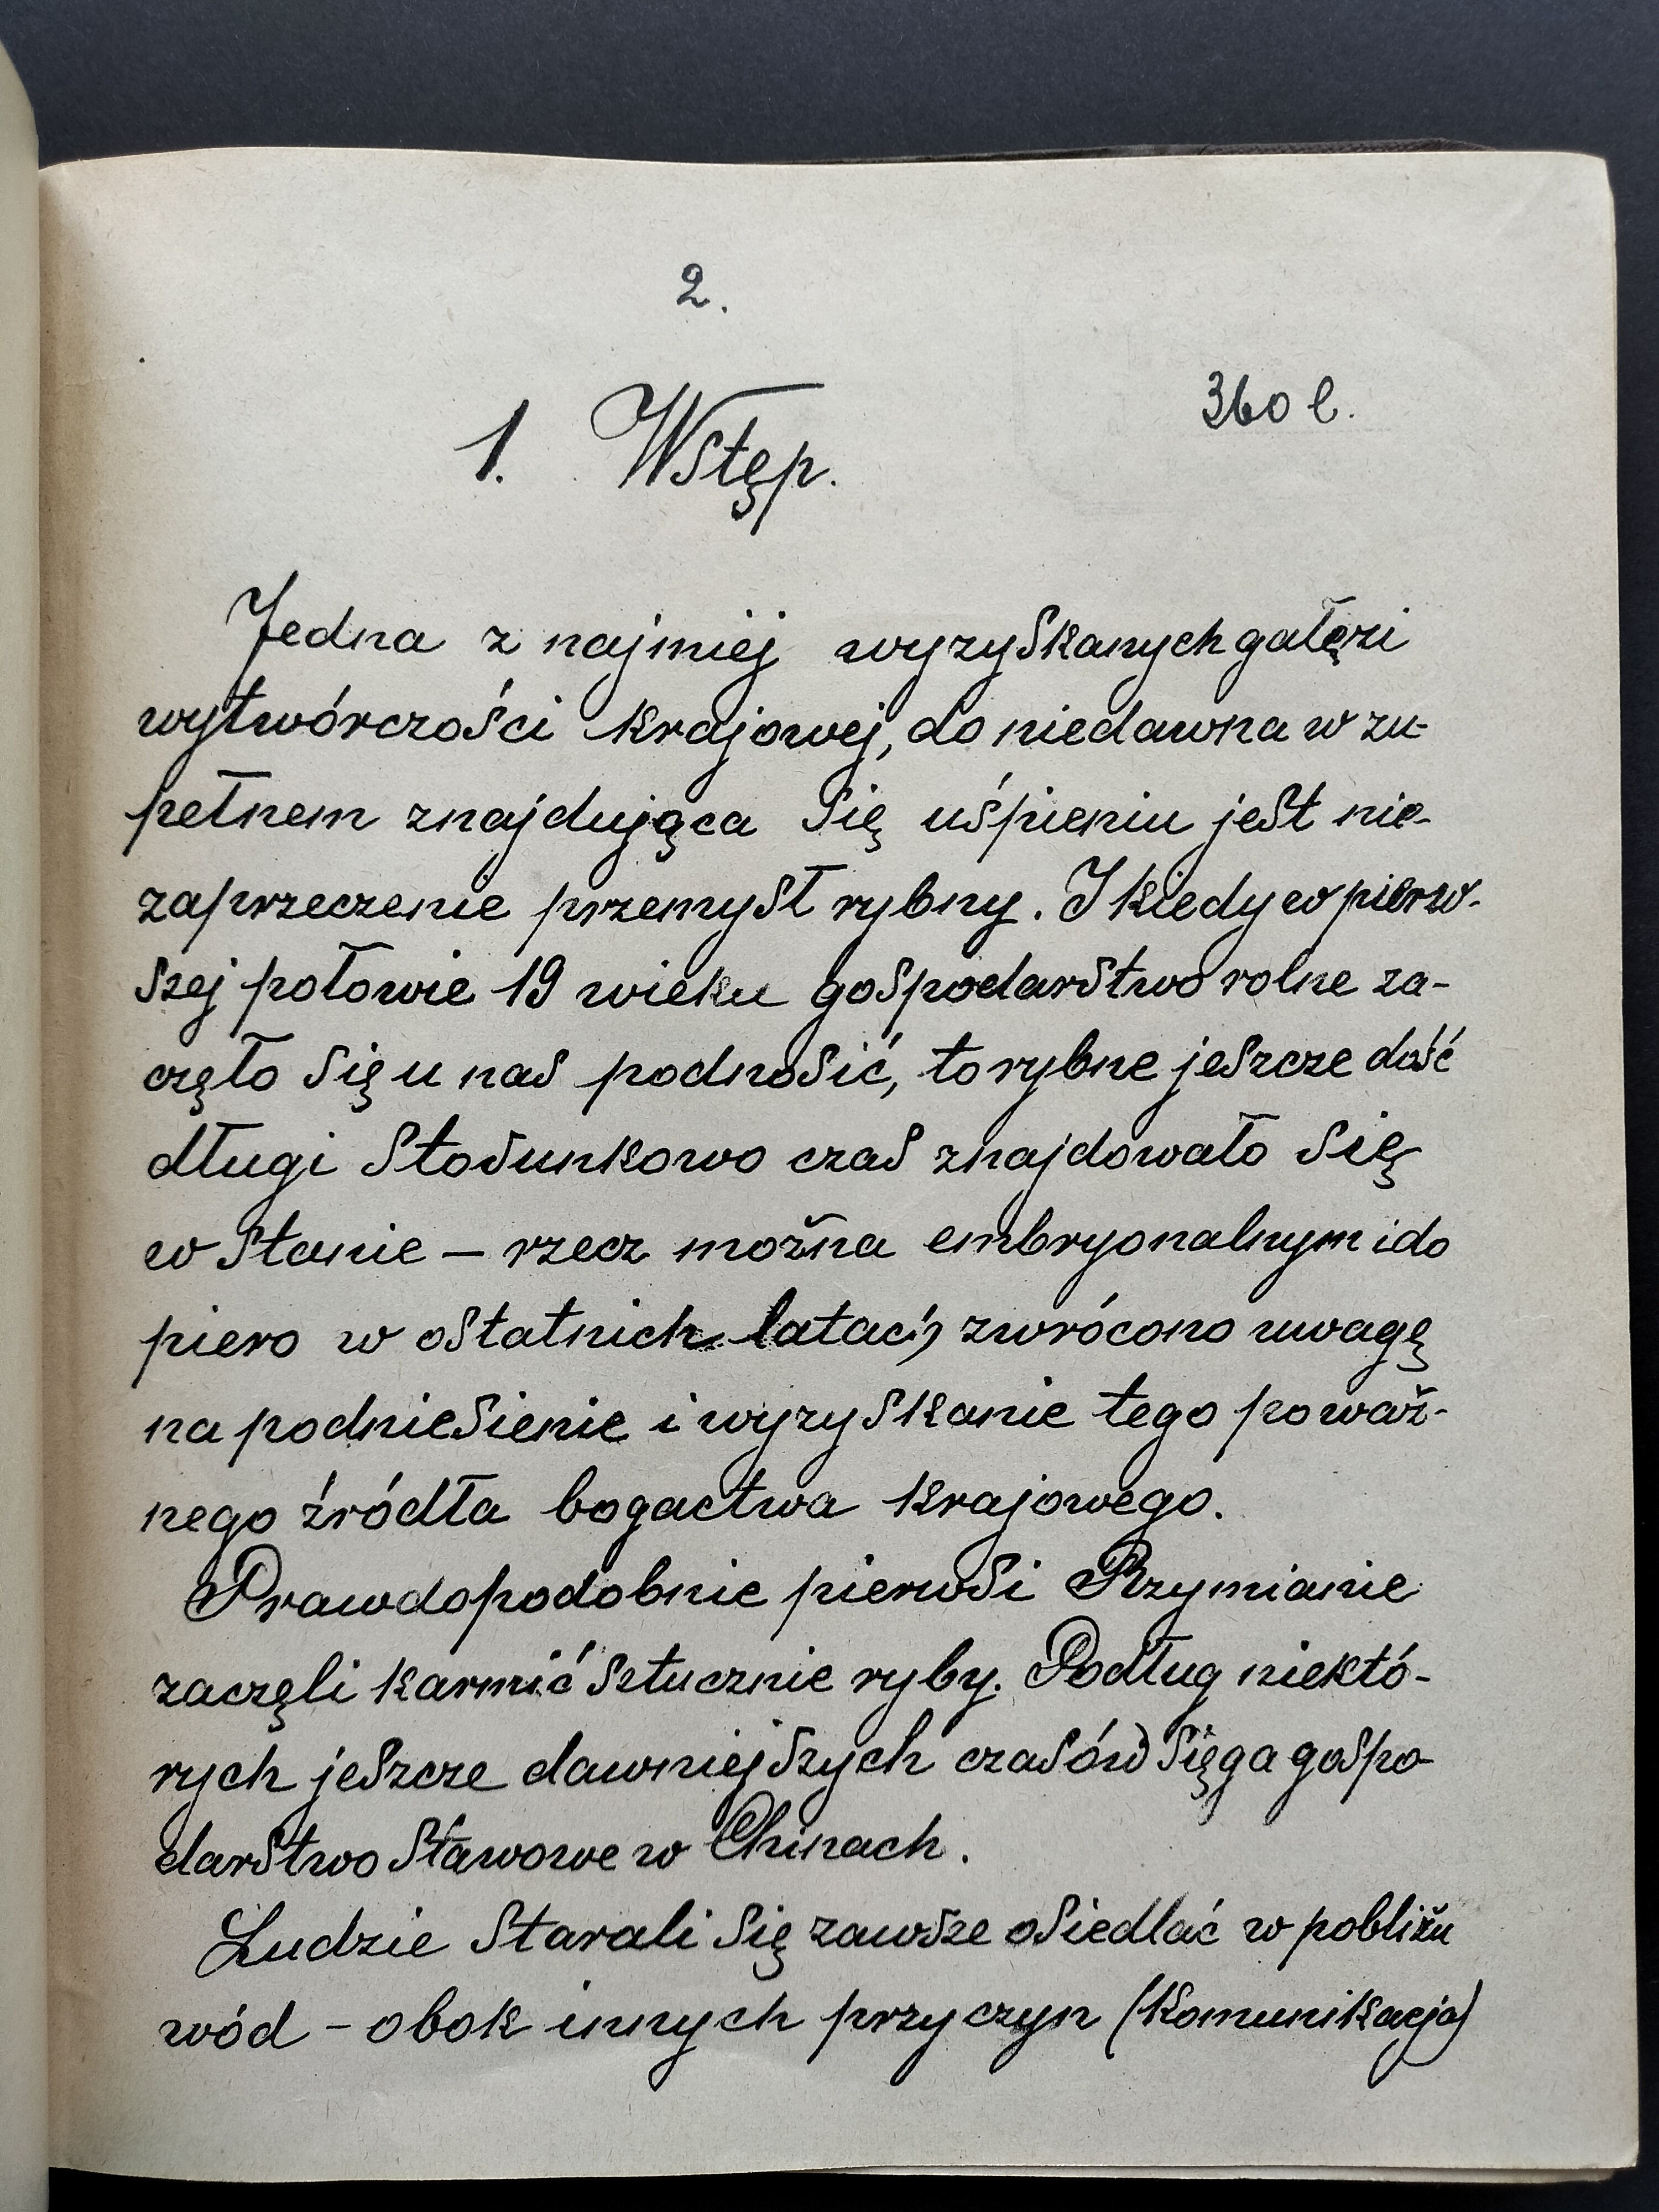 2.
360 l.
1. Wstęp.
Jedna z najmniej wyzyskanych gałęzi
wytwórczości krajowej, do niedawna w zu-
pełnem znajdująca się uśpieniu jest nie-
zaprzeczenie przemysł rybny. I kiedy w pierw-
szej połowie 19 wieku gospodarstwo rolne za-
częło się u nas podnosić, to rybne jeszcze dość
długi stosunkowo czas znajdowało się
w stanie – rzecz można embryonalnym i do
piero w ostatnich latach zwrócono uwagę
na podniesienie i wyzyskanie tego poważ-
nego źródła bogactwa krajowego.
Prawdopodobnie pierwsi Rzymianie
zaczęli karmić sztucznie ryby. Podług niektó-
rych jeszcze dawniejszych czasów sięga gospo-
darstwo stawowe w Chinach.
Ludzie starali się zawsze osiedlać w pobliżu
wód – obok innych przyczyn (komunikacja)